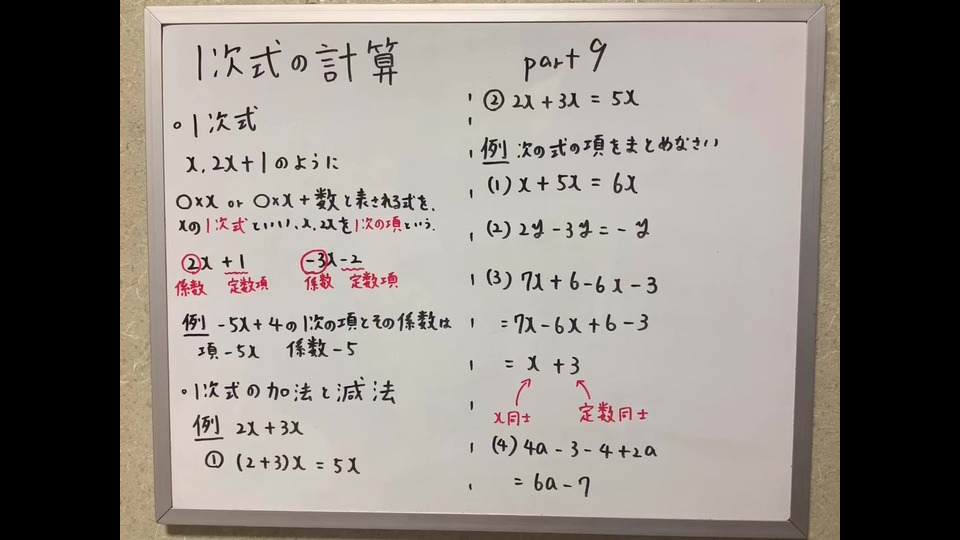 1次式の計算 part 9
○1次式
x, 2x+1のように
○×x or ○×x+数と表される式を、
xの1次式といい、x, 2xを1次の項という.
2x+1 -3x-2
係数 定数項 係数 定数項
例 -5x+4の1次の項とその係数は
項 -5x 係数 -5
○1次式の加法と減法
例 2x+3x
① (2+3)x = 5x
② 2x+3x = 5x
例 次の式の項をまとめなさい
(1) x+5x = 6x
(2) 2y-3y = -y
(3) 7x+6-6x-3
= 7x-6x+6-3
= x+3
x同士 定数同士
(4) 4a-3-4+2a
= 6a-7